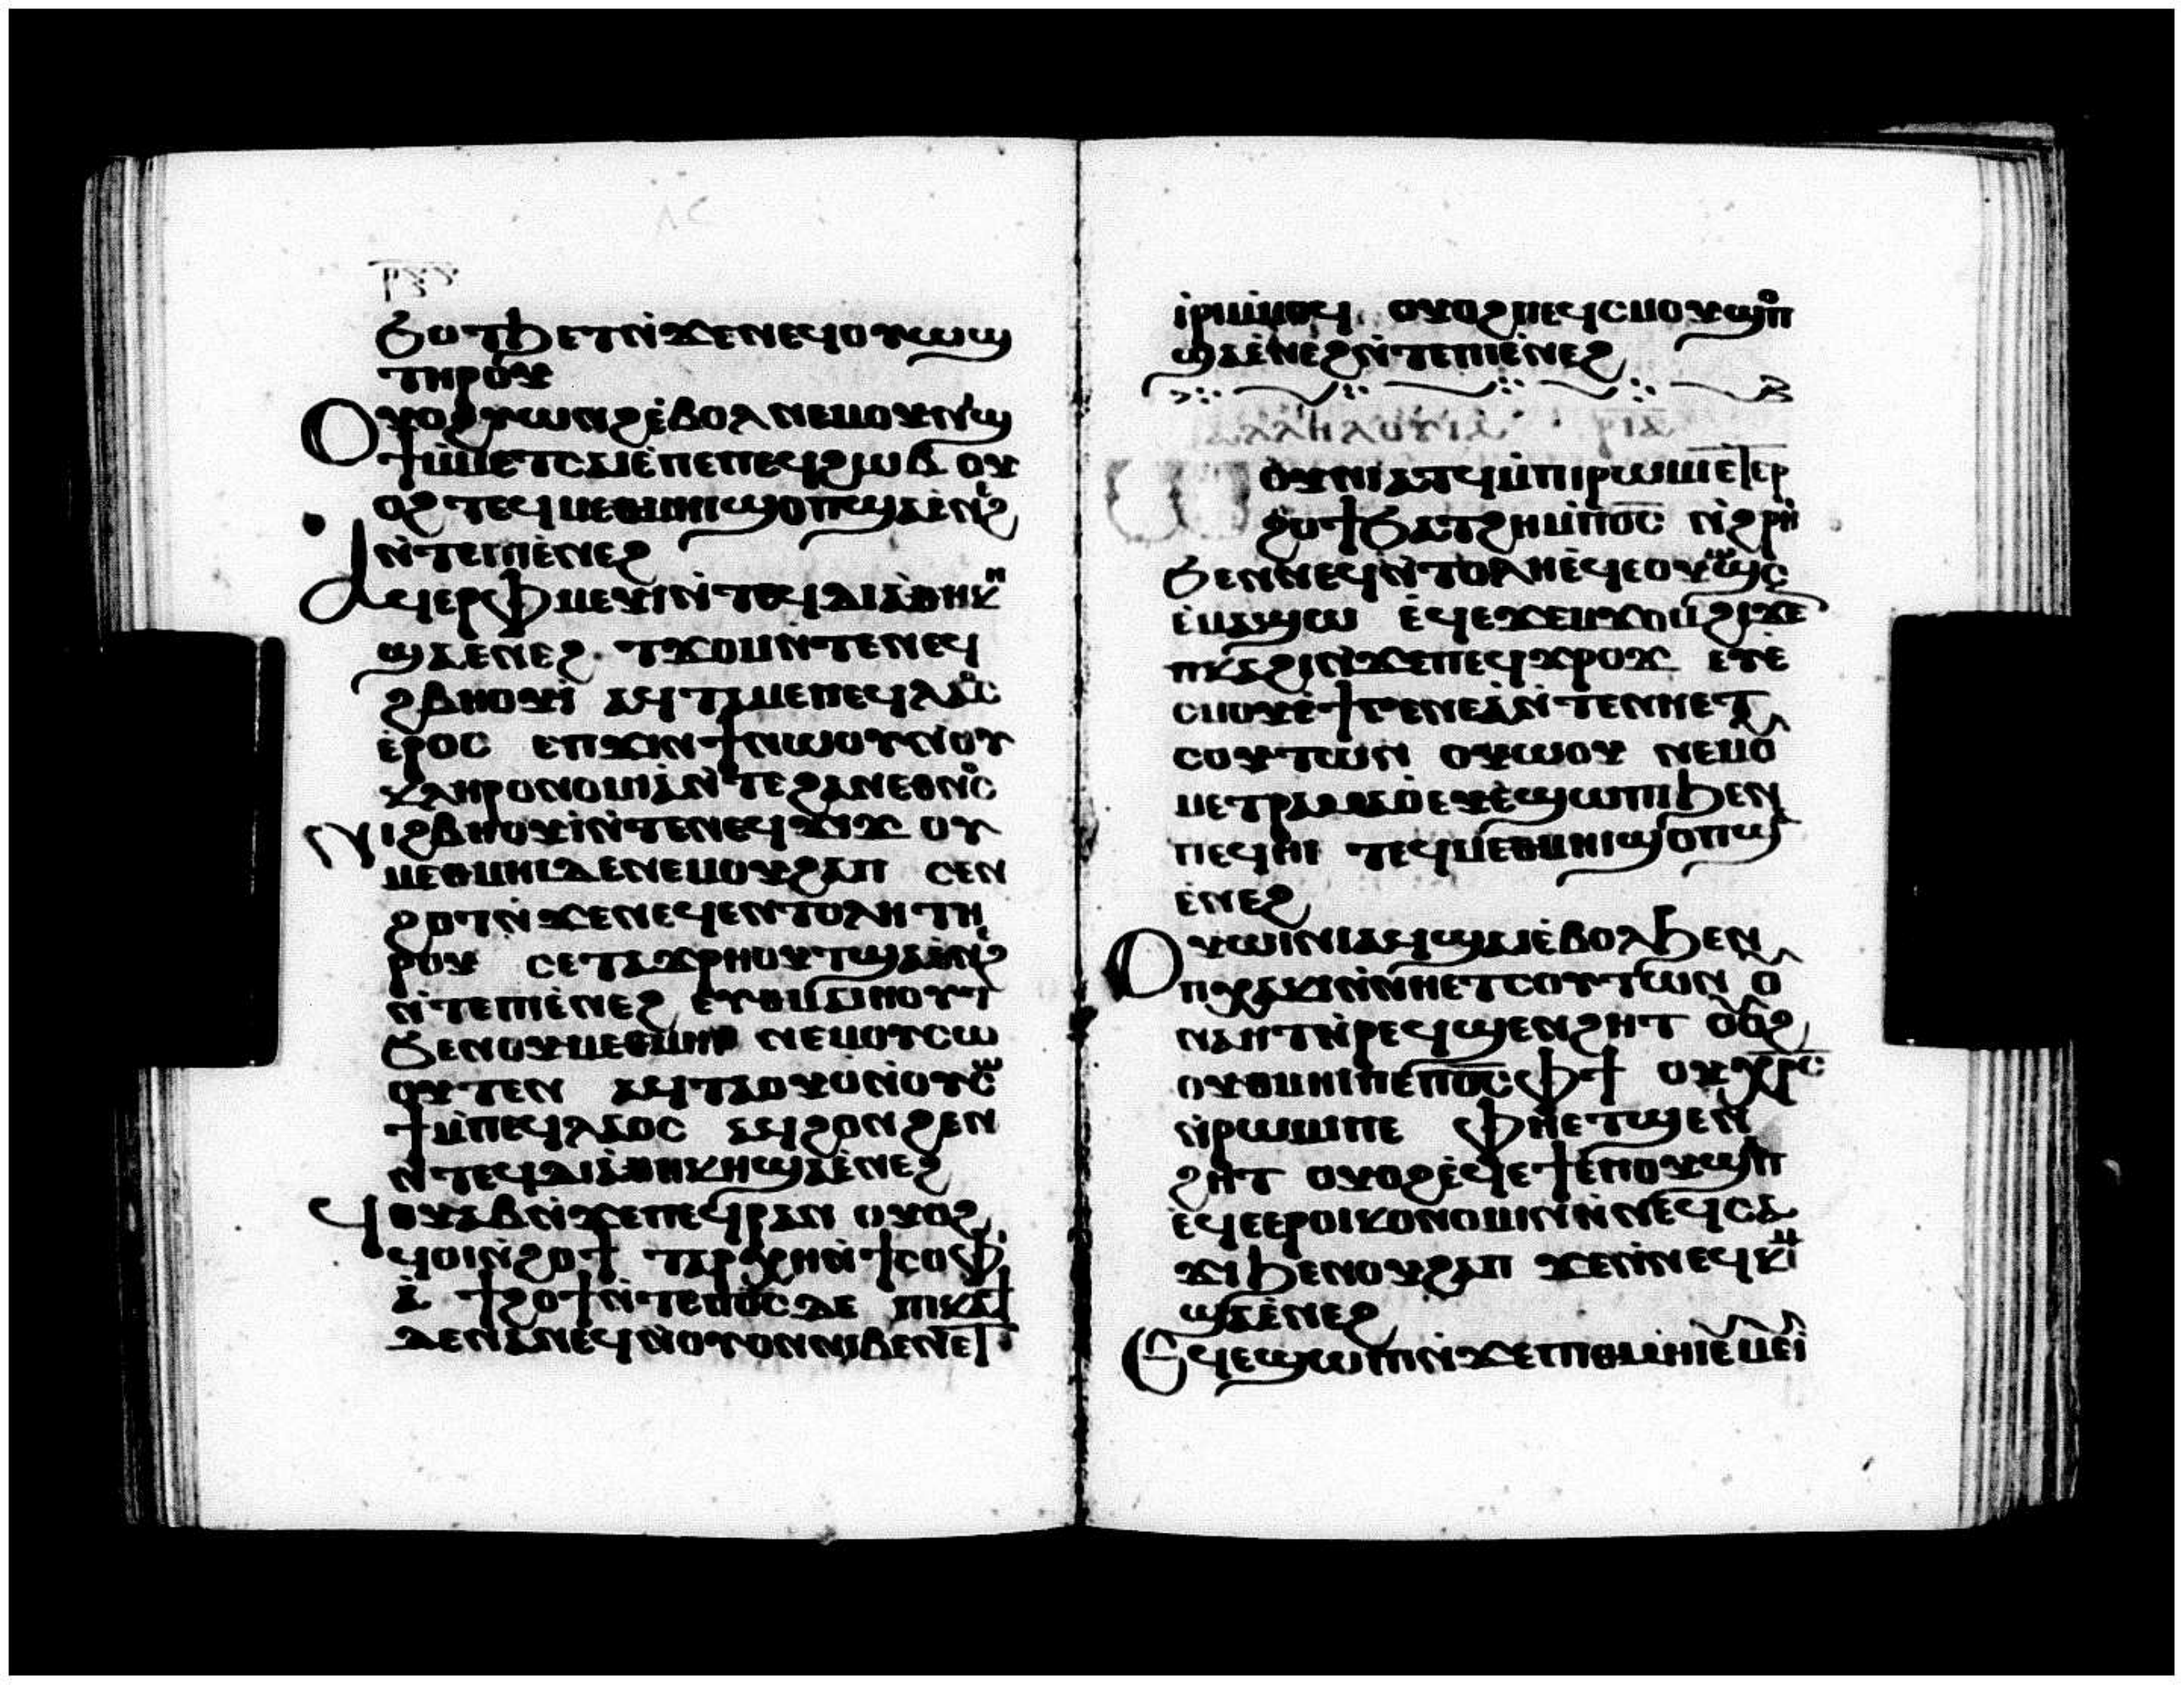 ϭⲟⲧϧⲉⲧⲛ̀ϫⲉⲛⲉϥⲟⲩⲱϣ
ⲧⲏⲣⲟⲩ
ⲟⲩⲟϩⲟⲩⲱⲛϩⲉ̀ⲃⲟⲗⲛⲉⲙⲟⲩⲛⲓϣ
ϯⲙ̀ⲙⲉⲧⲥⲁⲓⲉ̀ⲡⲉⲡⲉϥϩⲱⲃ ⲟⲩ
ⲟϩ ⲧⲉϥⲙⲉⲑⲙⲏⲓϣⲟⲡϣⲁⲉ̀ⲛϩ
ⲛ̀ⲧⲉⲡⲓⲉ̀ⲛⲉϩ
ⲁϥⲉⲣⲫⲙⲉⲩⲓⲛ̀ⲧⲉϥⲇⲓⲁⲑⲏⲕⲏ
ϣⲁⲉⲛⲉϩ ⲧϫⲟⲙⲛ̀ⲧⲉⲛⲉϥ
ϩⲃⲏⲟⲩⲓ̀ ⲁϥⲧⲁⲙⲉⲡⲉϥⲗⲁⲟⲥ
ⲉ̀ⲣⲟⲥ ⲉⲡϫⲓⲛϯⲛⲱⲟⲩⲛ̀ⲟⲩ
ⲕⲗⲏⲣⲟⲛⲟⲙⲓⲁⲛ̀ⲧⲉϩⲁⲛⲉⲑⲛⲟⲥ
ⲛⲓϩⲃⲏⲟⲩⲓ̀ⲛ̀ⲧⲉⲛⲉϥϫⲓϫ ⲟⲩ
ⲙⲉⲑⲙⲏⲓⲇⲉⲛⲉⲙⲟⲩϩⲁⲡ ⲥⲉⲛ
ϩⲟⲧⲛ̀ϫⲉⲛⲉϥⲉⲛⲧⲟⲗⲏ ⲧⲏ
ⲣⲟⲩ ⲥⲉⲧⲁϫⲣⲏⲟⲩⲧϣⲁⲉ̀ⲛϩ
ⲛ̀ⲧⲉⲡⲓⲉ̀ⲛⲉϩ ⲉⲩⲑⲙⲁⲓⲏⲟⲩⲧ
ϭⲉⲛⲟⲩⲙⲉⲑⲙⲏⲓ ⲛⲉⲙⲟⲩⲥⲱ
ⲟⲩⲧⲉⲛ ⲁϥⲧⲁⲟⲩⲟⲛ̀ⲟⲩⲥⲱ
ϯⲙ̀ⲡⲉϥⲗⲁⲟⲥ ⲁϥϩⲟⲛϩⲉⲛ
ⲛ̀ⲧⲉϥⲇⲓⲁⲑⲏⲕⲏϣⲁⲉ̀ⲛⲉϩ
ϥⲟⲩⲁⲃⲛ̀ϫⲉⲡⲉϥⲣⲁⲛ ⲟⲩⲟϩ
ϥⲟⲓⲛ̀ϩⲟϯ ⲧⲁⲣⲭⲏⲛ̀ϯⲥⲟⲫ
ⲓⲁ̀ ϯϩⲟϯⲛ̀ⲧⲉⲡⲟ̅ⲥ̅ⲇⲉ ⲡⲓⲕⲁϯ
ⲇⲉⲛⲁⲛⲉϥⲛ̀ⲟⲩⲟⲛⲛⲓⲃⲉⲛⲉⲧ
ⲓ̀ⲣⲓⲙ̀ⲙⲟϥ ⲟⲩⲟϩⲡⲉϥⲥⲙⲟⲩϣⲟⲡ
ϣⲁⲉ̀ⲛⲉϩⲛ̀ⲧⲉⲡⲓⲉ̀ⲛⲉϩ
ⲁⲗⲗⲏⲗⲟⲩⲓⲁ ⲣ̅ⲓ̅ⲁ̅
ⲱⲟⲩⲛⲓⲁⲧϥⲙ̀ⲡⲓⲣⲱⲙⲓⲉⲧⲉⲣ
ϩⲟϯϭⲁⲧϩⲏⲙ̀ⲡⲟ̅ⲥ̅ ⲛ̀ϩⲣⲏⲓ
ϭⲉⲛⲛⲉϥⲛ̀ⲧⲟⲗⲏⲉ̀ϥⲉⲟⲩⲱϣⲥ
ⲉ̀ⲙⲁϣⲱ ⲉϥⲉϫⲉⲙϫⲟⲙϩⲓϫⲉ
ⲡⲕⲁϩⲓⲛ̀ϫⲉⲡⲉϥϫⲣⲟϫ ⲉⲩⲉ̀
ⲥⲙⲟⲩⲉ̀ϯⲅⲉⲛⲉⲁⲛ̀ⲧⲉⲛⲏⲉⲧ
ⲥⲟⲩⲧⲱⲛ ⲟⲩⲱⲟⲩ ⲛⲉⲙⲟ
ⲙⲉⲧⲣⲁⲙⲁⲟ̀ⲉⲩⲉ̀ϣⲱⲡⲓϧⲉⲛ
ⲡⲉϥⲏⲓ ⲧⲉϥⲙⲉⲑⲙⲏⲓϣⲟⲡϣ
ⲉ̀ⲛⲉϩ
ⲟⲩⲱⲓⲛⲓⲁϥϣⲁⲓⲉ̀ⲃⲟⲗϧⲉⲛ
ⲡⲭⲁⲕⲓⲛ̀ⲛⲏⲉⲧⲥⲟⲩⲧⲱⲛ ⲟ
ⲛⲁⲏⲧⲛ̀ⲣⲉϥϣⲉⲛϩⲏⲧ ⲟⲩⲟϩ
ⲟⲩⲑⲙⲏⲓⲡⲉⲡⲟ̅ⲥ̅ⲫϯ ⲟⲩⲭ̅ⲣ̅ⲥ̅
ⲛ̀ⲣⲱⲙⲓⲡⲉ ⲫⲏⲉⲧϣⲉⲛ
ϩⲏⲧ ⲟⲩⲟϩⲉ̀ϥⲉϯⲉ̀ⲡⲟⲩϣⲁⲡ
ⲉ̀ϥⲉⲉⲣⲟⲓⲕⲟⲛⲟⲙⲓⲛ̀ⲛⲉϥⲥⲁ
ϫⲓϧⲉⲛⲟⲩϩⲁⲡ ϫⲉⲛ̀ⲛⲉϥⲕⲓⲙ
ϣⲁⲉ̀ⲛⲉϩ
ⲉϥⲉϣⲱⲡⲓⲛ̀ϫⲉⲡⲓⲑⲙⲏⲓⲉⲙⲉⲓ